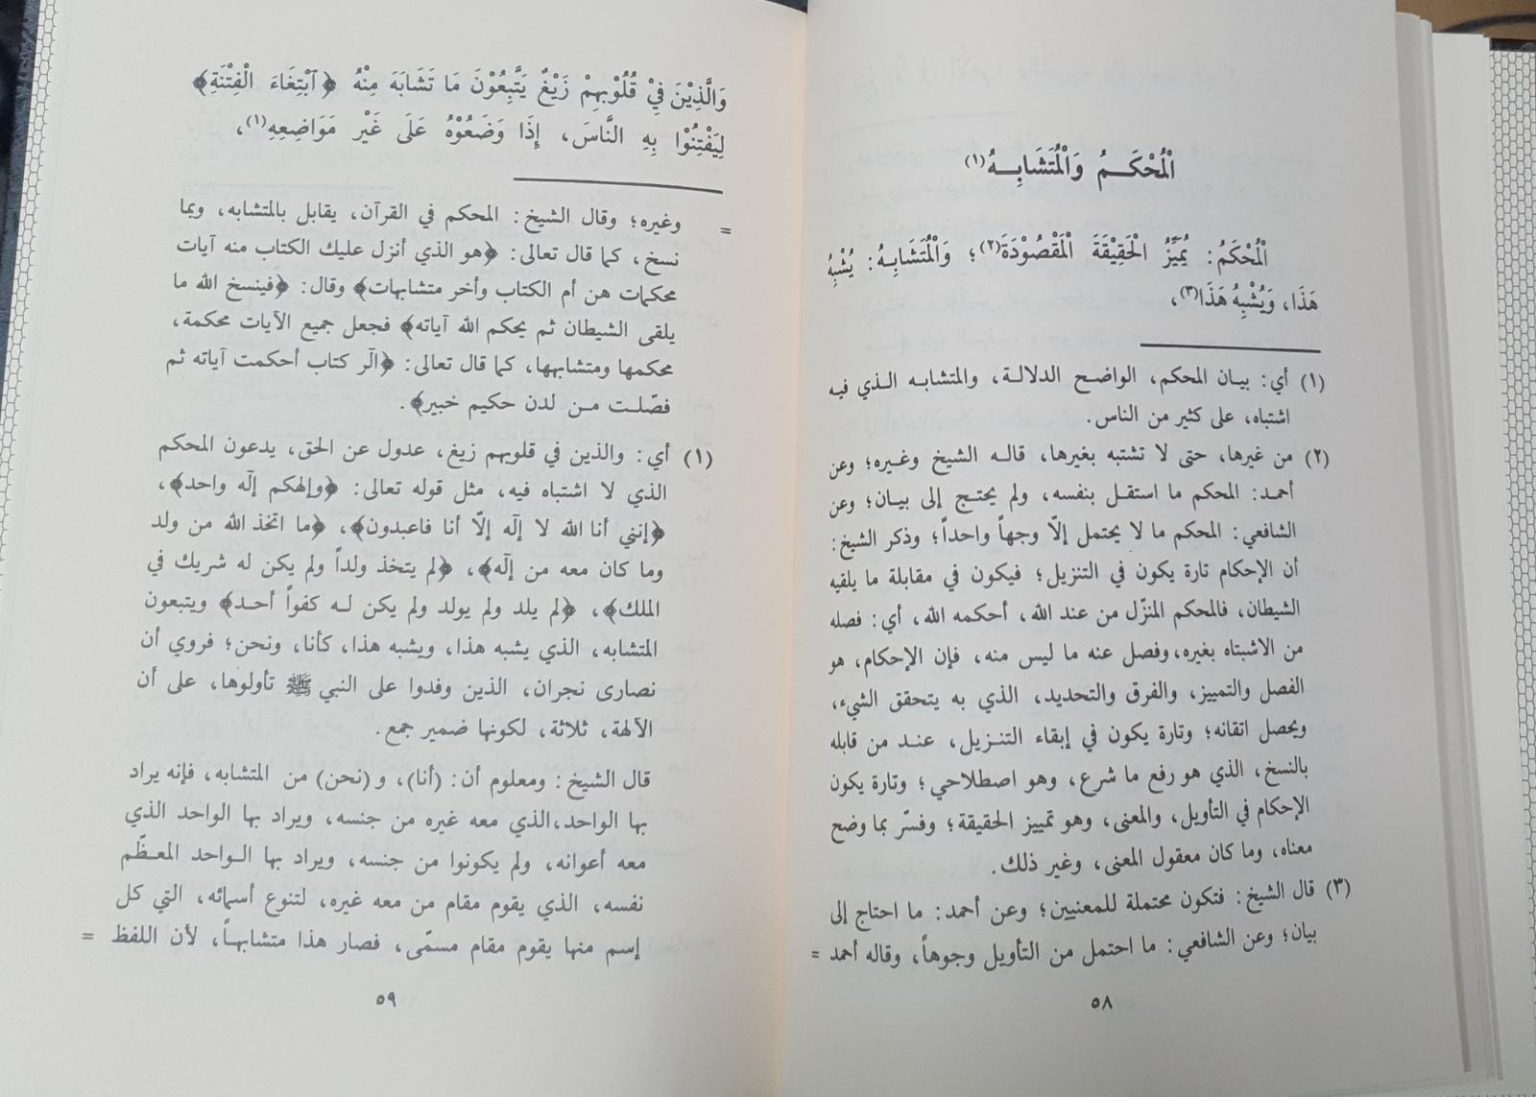 اَلْمُحْكَـــمُ وَالْمُتَشَابِـــهُ(١)
اَلْمُحْكَمُ: يُمَيِّزُ الْحَقِيْقَةَ الْمَقْصُوْدَةَ(٢)؛ وَالْمُتَشَابِـهُ: يُشْبِهُ
هَذَا، وَيُشْبِهُ هَذَا(٣)،
(١) أي: بيـان المحكم، الواضـح الدلالـة، والمتشابـه الـذي فيـه
اشتباه، على كثير من الناس.
(٢) من غيرها، حتى لا تشتبه بغيرها، قالـه الشيخ وغـيره؛ وعن
أحمـد: المحكم ما استقـل بنفسه، ولم يحتـج إلى بيـان؛ وعن
الشافعي: المحكم ما لا يحتمل إلّا وجهاً واحداً؛ وذكر الشيخ:
أن الإحكام تارة يكون في التنزيل؛ فيكون في مقابلة ما يلقيه
الشيطان، فالمحكم المنزّل من عند الله، أحكمه الله، أي: فصله
من الاشبتاه بغيره، وفصل عنه ما ليس منه، فإن الإحكام، هو
الفصل والتمييز، والفرق والتحديد، الذي به يتحقق الشيء،
ويحصل اتقانه؛ وتارة يكون في إبقاء التنـزيل، عنـد من قابله
بالنسخ، الذي هو رفع ما شرع، وهو اصطلاحي؛ وتارة يكون
الإحكام في التأويل، والمعنى، وهو تمييز الحقيقة؛ وفسّر بما وضح
معناه، وما كان معقول المعنى، وغير ذلك.
(٣) قال الشيخ: فتكون محتملة للمعنيين؛ وعن أحمد: ما احتاج إلى
بيان؛ وعن الشافعي: ما احتمل من التأويل وجوهاً، وقاله أحمد =
٥٨
وَالَّذِيْنَ فِيْ قُلُوْبِهِمْ زَيْغٌ يَتَّبِعُوْنَ مَا تَشَابَهَ مِنْهُ ﴿آبْتِغَاءَ الْفِتْنَةِ﴾
لِيَفْتِنُوْا بِهِ النَّاسَ، إِذَا وَضَعُوْهُ عَلَى غَيْرِ مَوَاضِعِهِ(١)،
= وغيره؛ وقال الشيخ: المحكم في القرآن، يقابل بالمتشابه، وبما
نسخ، كما قال تعالى: ﴿هو الذي أنزل عليك الكتاب منه آيات
محكمات هن أم الكتاب وأخر متشابهات﴾ وقال: ﴿فينسخ الله ما
يلقى الشيطان ثم يحكم الله آياته﴾ فجعل جميع الآيات محكمة،
محكمها ومتشابهها، كما قال تعالى: ﴿الٓر كتاب أحكمت آياته ثم
فصّلـت مـن لدن حكيم خبير﴾.
(١) أي: والذين في قلوبهم زيغ، عدول عن الحق، يدعون المحكم
الذي لا اشتباه فيه، مثل قوله تعالى: ﴿وإلهكم إلٓه واحد﴾،
﴿إنني أنا الله لا إلٓه إلّا أنا فاعبدون﴾، ﴿ما اتخذ الله من ولد
وما كان معه من إلٓه﴾، ﴿لم يتخذ ولداً ولم يكن له شريك في
الملك﴾، ﴿لم يلد ولم يولد ولم يكن لـه كفواً أحـد﴾ ويتبعون
المتشابه، الذي يشبه هذا، ويشبه هذا، كأنا، ونحن؛ فروي أن
نصارى نجران، الذين وفدوا على النبي ﷺ تأولوها، على أن
الآلهة، ثلاثة، لكونها ضمير جمع.
قال الشيخ: ومعلوم أن: (أنا)، و(نحن) من المتشابه، فإنه يراد
بها الواحد، الذي معه غيره من جنسه، ويراد بها الواحد الذي
معه أعوانه، ولم يكونوا من جنسه، ويراد بها الـواحد المعـظّم
نفسه، الذي يقوم مقام من معه غيره، لتنوع أسمائه، التي كل
إسم منها يقوم مقام مسمّى، فصار هذا متشابهـاً، لأن اللفظ =
٥٩